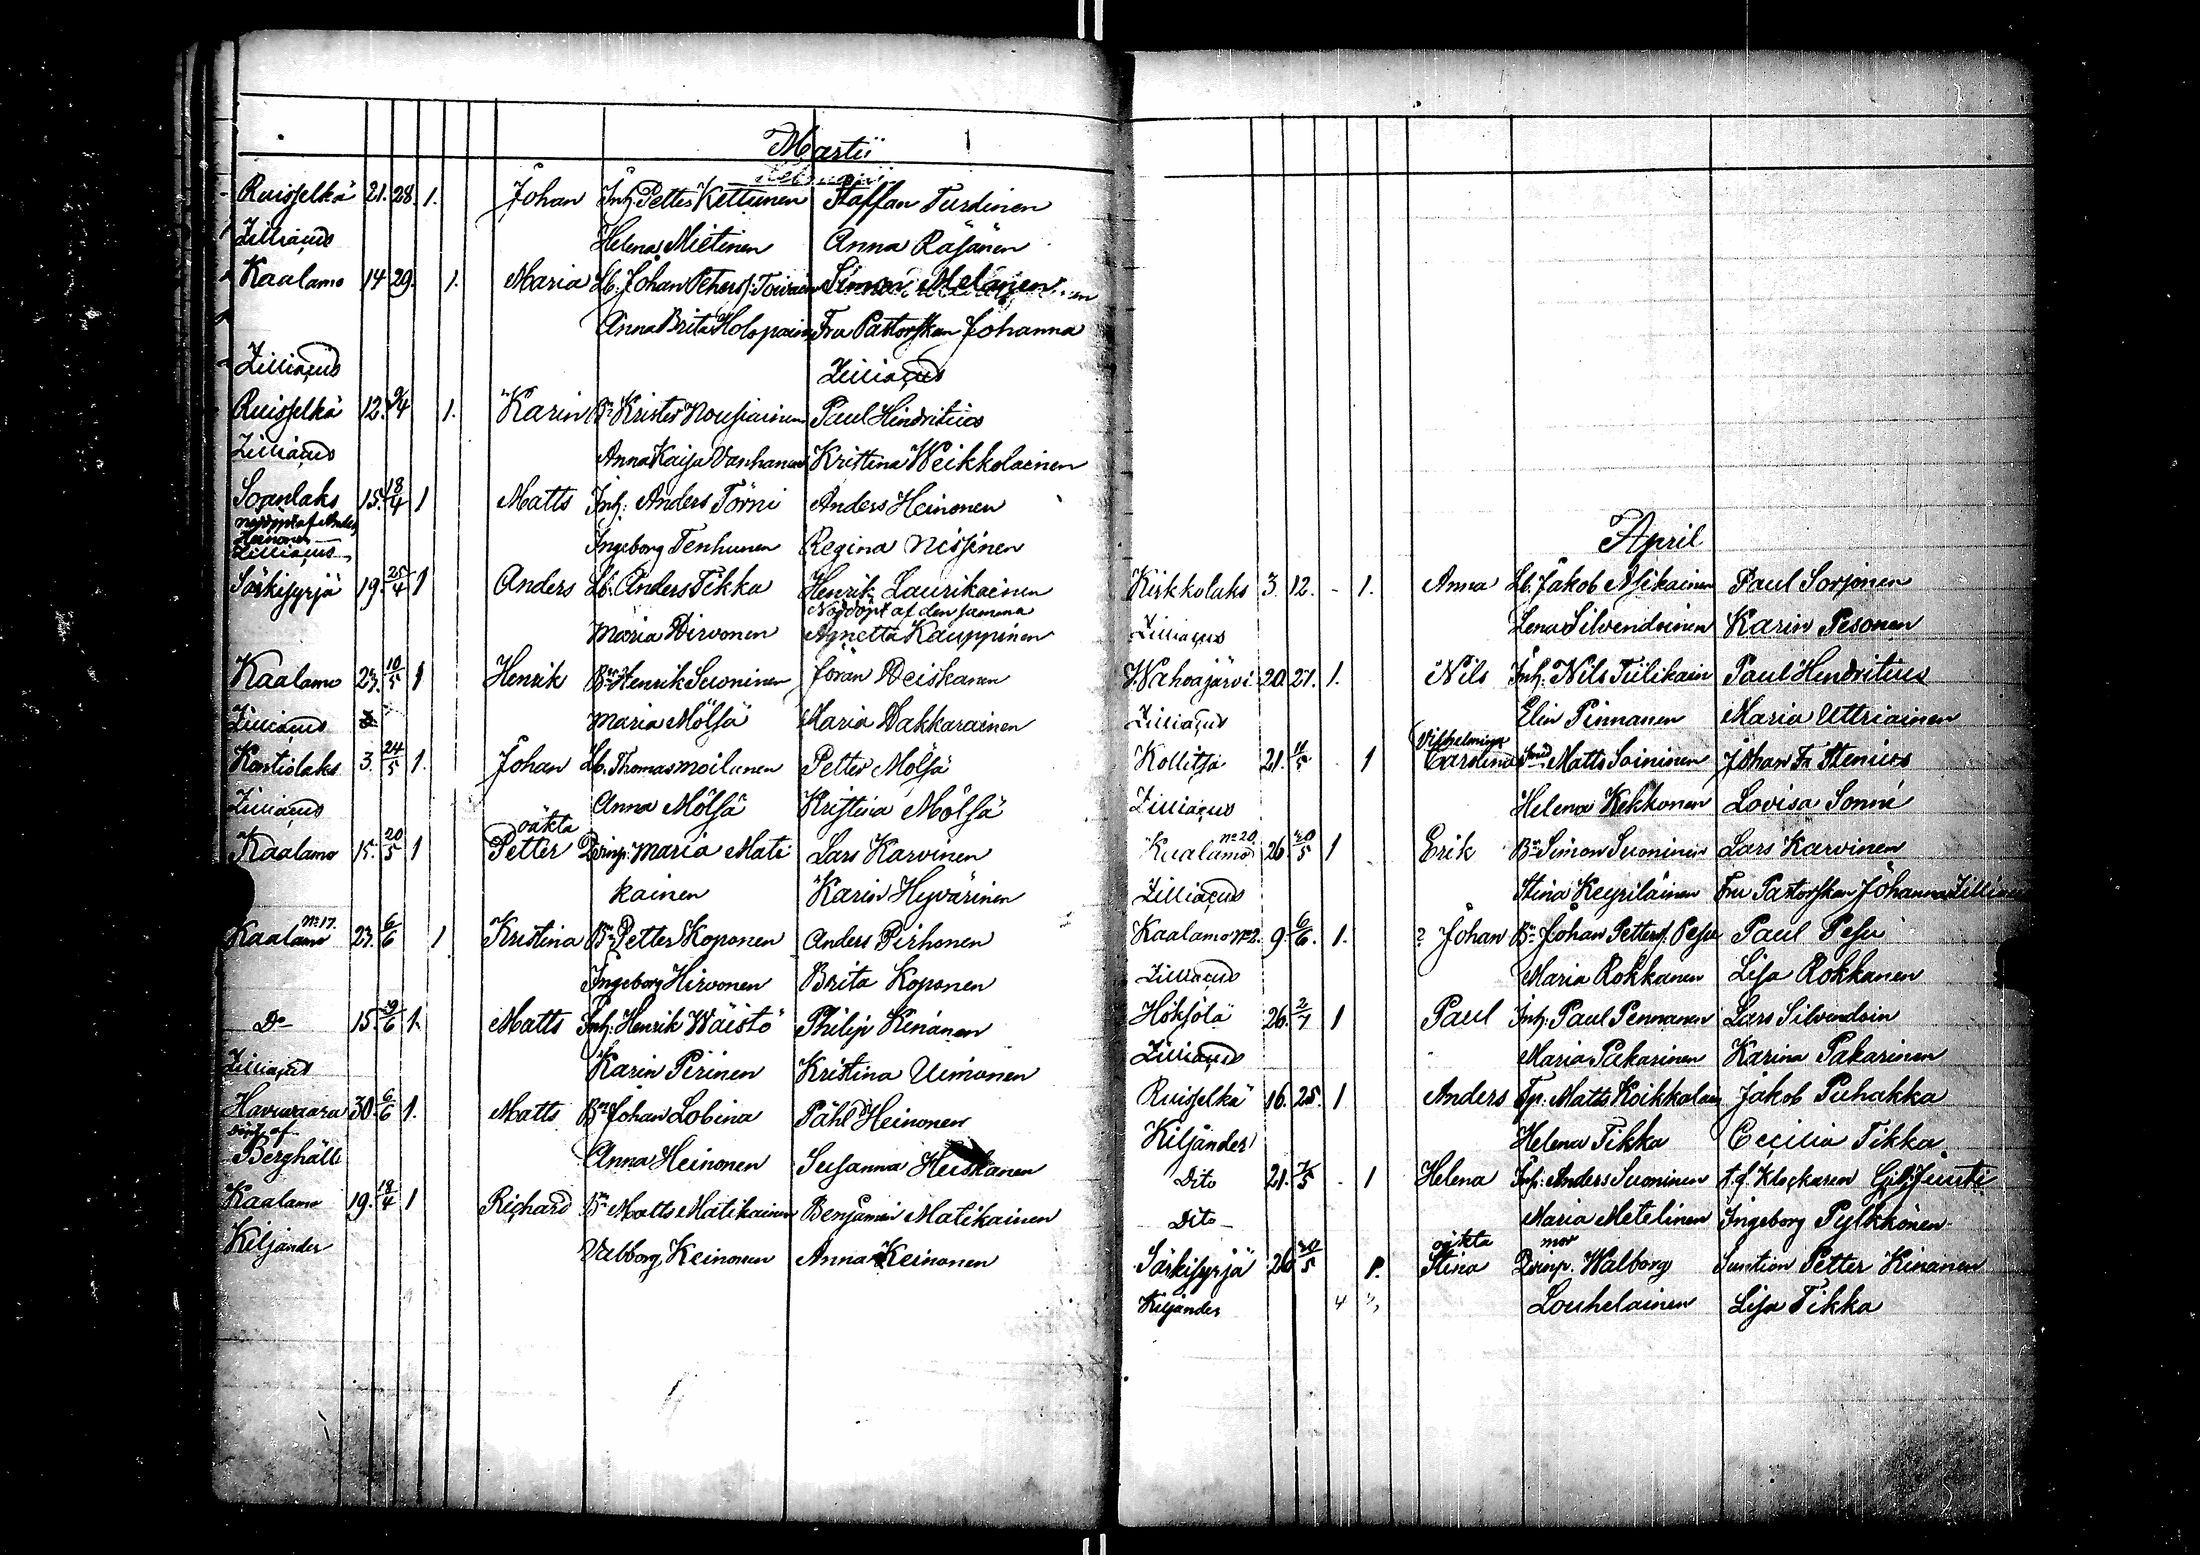 Martii
Ruisselkä 21. 28. 1. Johan Inh. Petter Kettunen Staffan Turdinen
Zilliacus Helena Mietinen Anna Räsänen
Kaalamo 14 29. 1. Maria Lb. Johan Peters. Toivain Simon Melanen
Anna Brita Holopain Fru Pastorskan Johanna
Zilliacus Zilliacus
Ruisselkä 12. 9/4 1. Karin Bn Krister Nousiainen Paul Hindritius
Zilliacus Anna Kaisa Vanhanen Kristina Weikkolainen
Soanlaks 15. 18/4 1 Matts Inh: Anders Törni Anders Heinonen
nöddöpt af Anders
Heinonen
Zilliacus Ingeborg Tenhunen Regina Nissinen
Särkisyrjä 19. 25/4 1 Anders Lb. Anders Tikka Henrik Laurikainen
Nöddöpt af den samma
Maria Hirvonen Agnetta Kauppinen
Kaalamo 23. 10/5 1 Henrik Bn Henrik Suoninen Jöran Heiskanen
Zilliacus Maria Mölsä Maria Hakkarainen
Kontiolaks 3. 24/5 1. Johan Lb. Thomas Moilanen Petter Mölsä
Zilliacus Anna Mölsä Kristina Mölsä
oäkta
Kaalamo 15. 20/5 1 Petter Qvinp. Maria Mati Lars Karvinen
kainen Karin Hyvärinen
No 17.
Kaalamo 23. 6/6 1 Kristina Bn Petter Koponen Anders Pirhonen
Ingeborg Hirvonen Brita Koponen
Do 15. 19/6 1. Matts Inh: Henrik Wäistö Philip Kinanen
Zilliacus Karin Pirinen Kristina Uimonen
Havuvaara 30. 6/6 1. Matts Bn Johan Lobina Påhl Heinonen
döpt af
Berghäll Anna Heinonen Susanna Heiskanen
Kaalamo 19. 18/4 1 Richard Bn Matts Matikainen Benjamin Matikainen
Kiljander Valborg Keinonen Anna Keinonen
April
Kirkkolaks 3. 12. - 1. Anna Lb. Jakob Asikainen Paul Sorjonen
Zilliacus Lena Silvendoinen Karin Pesonen
Wahvajärvi 20. 27. 1. Nils Inh: Nils Tiilikain Paul Hendritius
Zilliacus Elin Pinnanen Maria Uttriainen
Vilhelmina
Kollitsa 21. 11/5 1 Carolina Smed Matts Soininen Johan Fr Stenius
Zilliacus Helena Kekkonen Lovisa Sonni
No 20.
Kualamo 26 20/5 1 Erik Bn Simon Suoninen Lars Karvinen
Zilliacus Stina Keyriläinen Fru Pastorskan Johanna Zilliacus
Kaalamo No 2. 9. 6/6. 1. ? Johan Bn Johan Petters. Pesu Paul Pesu
Zilliacus Maria Rokkanen Lisa Rokkanen
Höksölä 26. 2/7 1 Paul Inh: Paul Pennanen Lars Silvendoin
Zilliacus Maria Pakarinen Karina Pakarinen
Ruisselkä 16. 25. 1 Anders Matts Koikkalain Jakob Puhakka
Kiljander Helena Tikka Cecilia Tikka
Dito 21. 7/5 - 1 Helena Inh: Anders Suoninen t.f. Klockaren Gil. Juuti
Dito Maria Metelinen Ingeborg Pylkkönen
oäkta mor
Särkisyrjä 26 20/5 1. Stina Qvinp. Walborg Suntion Petter Kinanen
Kiljander 4 Louhelainen Lisa Tikka